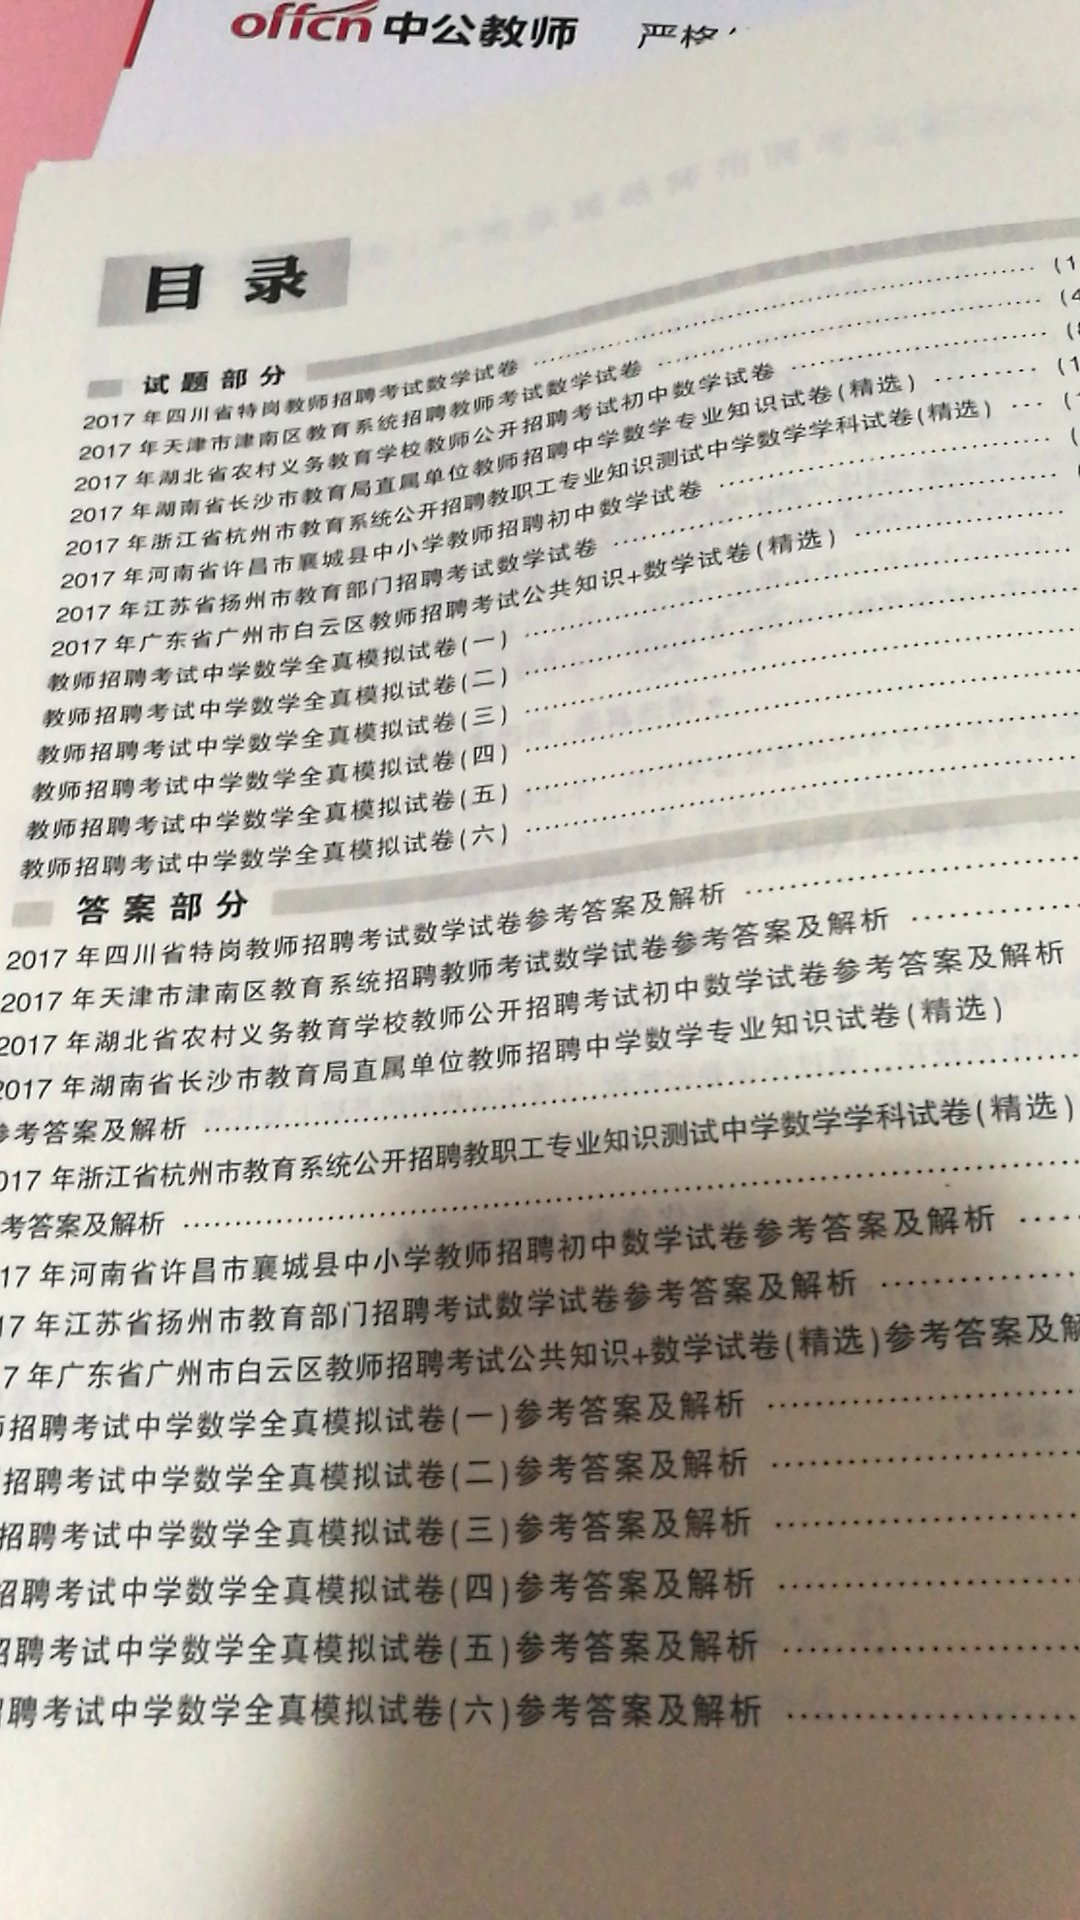 offcn中公教师 严格
目录
试题部分
2017年四川省特岗教师招聘考试数学试卷 (1
2017年天津市津南区教育系统招聘教师考试数学试卷 (4
2017年湖北省农村义务教育学校教师公开招聘考试初中数学试卷 (8
2017年湖南省长沙市教育局直属单位教师招聘中学数学专业知识试卷(精选) (1
2017年浙江省杭州市教育系统公开招聘教职工专业知识测试中学数学学科试卷(精选) (1
2017年河南省许昌市襄城县中小学教师招聘初中数学试卷 (
2017年江苏省扬州市教育部门招聘考试数学试卷
2017年广东省广州市白云区教师招聘考试公共知识+数学试卷(精选)
教师招聘考试中学数学全真模拟试卷(一)
教师招聘考试中学数学全真模拟试卷(二)
教师招聘考试中学数学全真模拟试卷(三)
教师招聘考试中学数学全真模拟试卷(四)
教师招聘考试中学数学全真模拟试卷(五)
教师招聘考试中学数学全真模拟试卷(六)
答案部分
2017年四川省特岗教师招聘考试数学试卷参考答案及解析
2017年天津市津南区教育系统招聘教师考试数学试卷参考答案及解析
2017年湖北省农村义务教育学校教师公开招聘考试初中数学试卷参考答案及解析
2017年湖南省长沙市教育局直属单位教师招聘中学数学专业知识试卷(精选)
参考答案及解析
017年浙江省杭州市教育系统公开招聘教职工专业知识测试中学数学学科试卷(精选)
考答案及解析
17年河南省许昌市襄城县中小学教师招聘初中数学试卷参考答案及解析
17年江苏省扬州市教育部门招聘考试数学试卷参考答案及解析
7年广东省广州市白云区教师招聘考试公共知识+数学试卷(精选)参考答案及解
师招聘考试中学数学全真模拟试卷(一)参考答案及解析
招聘考试中学数学全真模拟试卷(二)参考答案及解析
招聘考试中学数学全真模拟试卷(三)参考答案及解析
招聘考试中学数学全真模拟试卷(四)参考答案及解析
招聘考试中学数学全真模拟试卷(五)参考答案及解析
聘考试中学数学全真模拟试卷(六)参考答案及解析